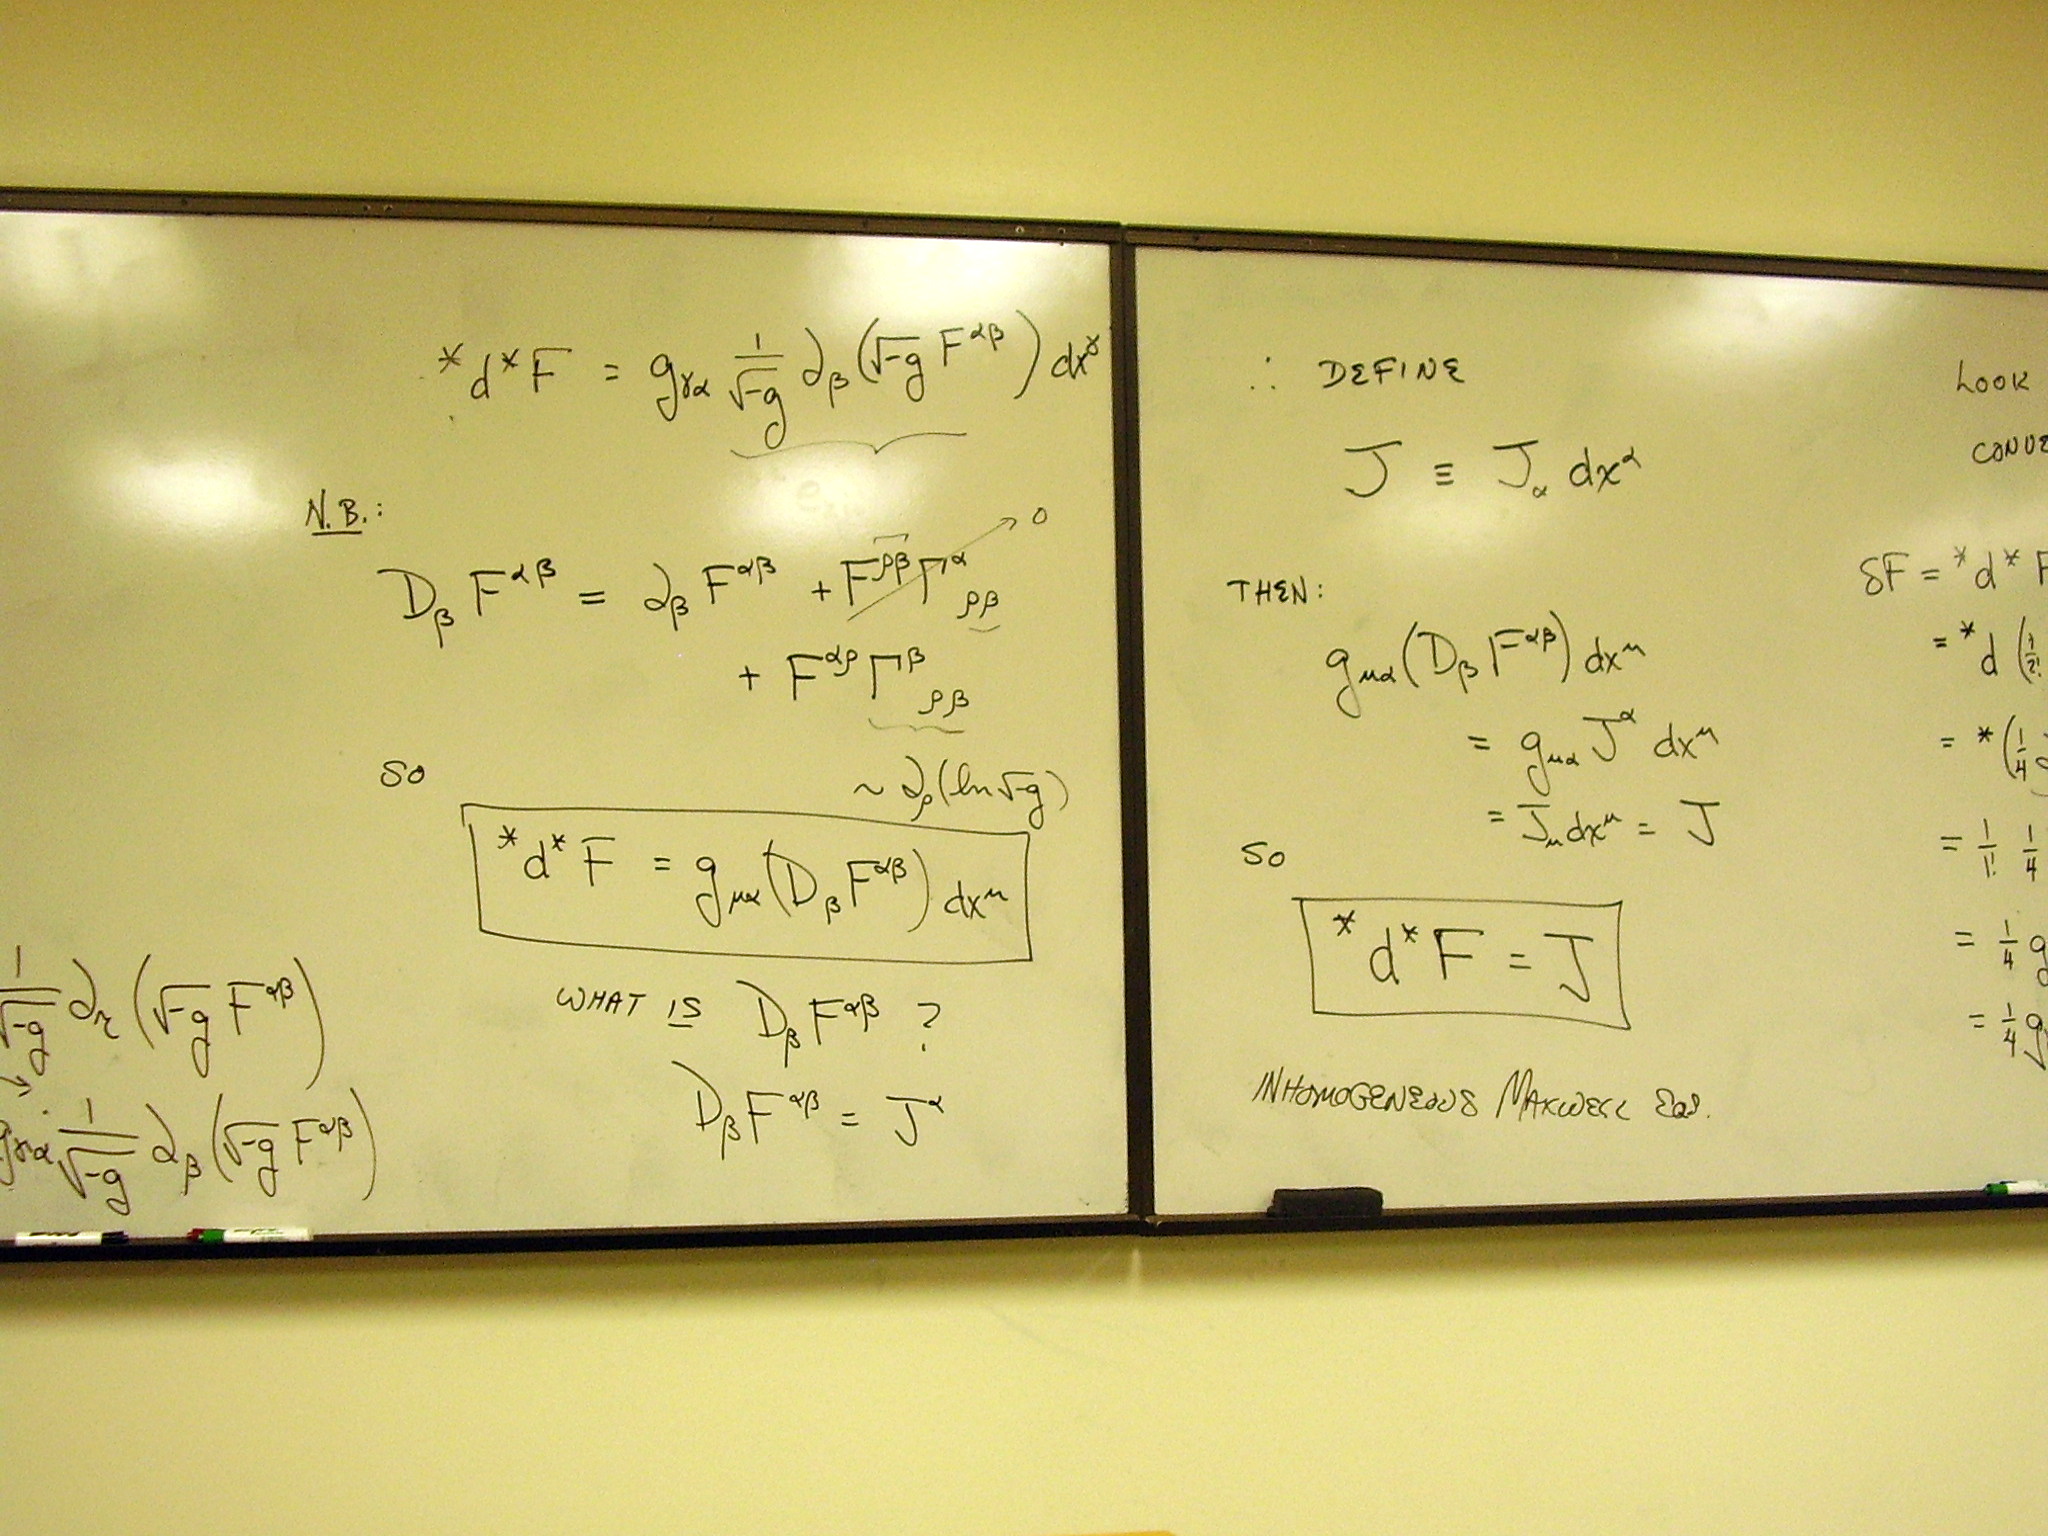 *d*F = g_γα 1/√-g ∂_β (√-g F^αβ) dx^γ
N.B.:
D_β F^αβ = ∂_β F^αβ + F^ρβ Γ^α_ρβ → 0
+ F^αρ Γ^β_ρβ
~ ∂_ρ (ln √-g)
SO
*d*F = g_μα (D_β F^αβ) dx^μ
WHAT IS D_β F^αβ ?
D_β F^αβ = J^α
1/√-g ∂_η (√-g F^αβ)
→
g_γα 1/√-g ∂_β (√-g F^αβ)
∴ DEFINE
J ≡ J_α dx^α
THEN:
g_μα (D_β F^αβ) dx^μ
= g_μα J^α dx^μ
= J_μ dx^μ = J
SO
*d*F = J
INHOMOGENEOUS MAXWELL EQS.
LOOK
δF = *d*F
= *d (1/2!
= *(1/4
= 1/1! 1/4
= 1/4 g
= 1/4 g